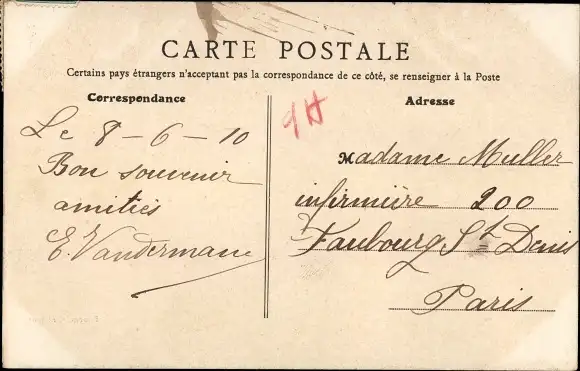 CARTE POSTALE
Certains pays étrangers n'acceptent pas la correspondance de ce côté, se renseigner à la Poste
Correspondance
Le 8-6-10
Bon souvenir
amitiés
E. Vandermane
Adresse
9H
Madame Muller
infirmière 200
Faubourg St Denis
Paris